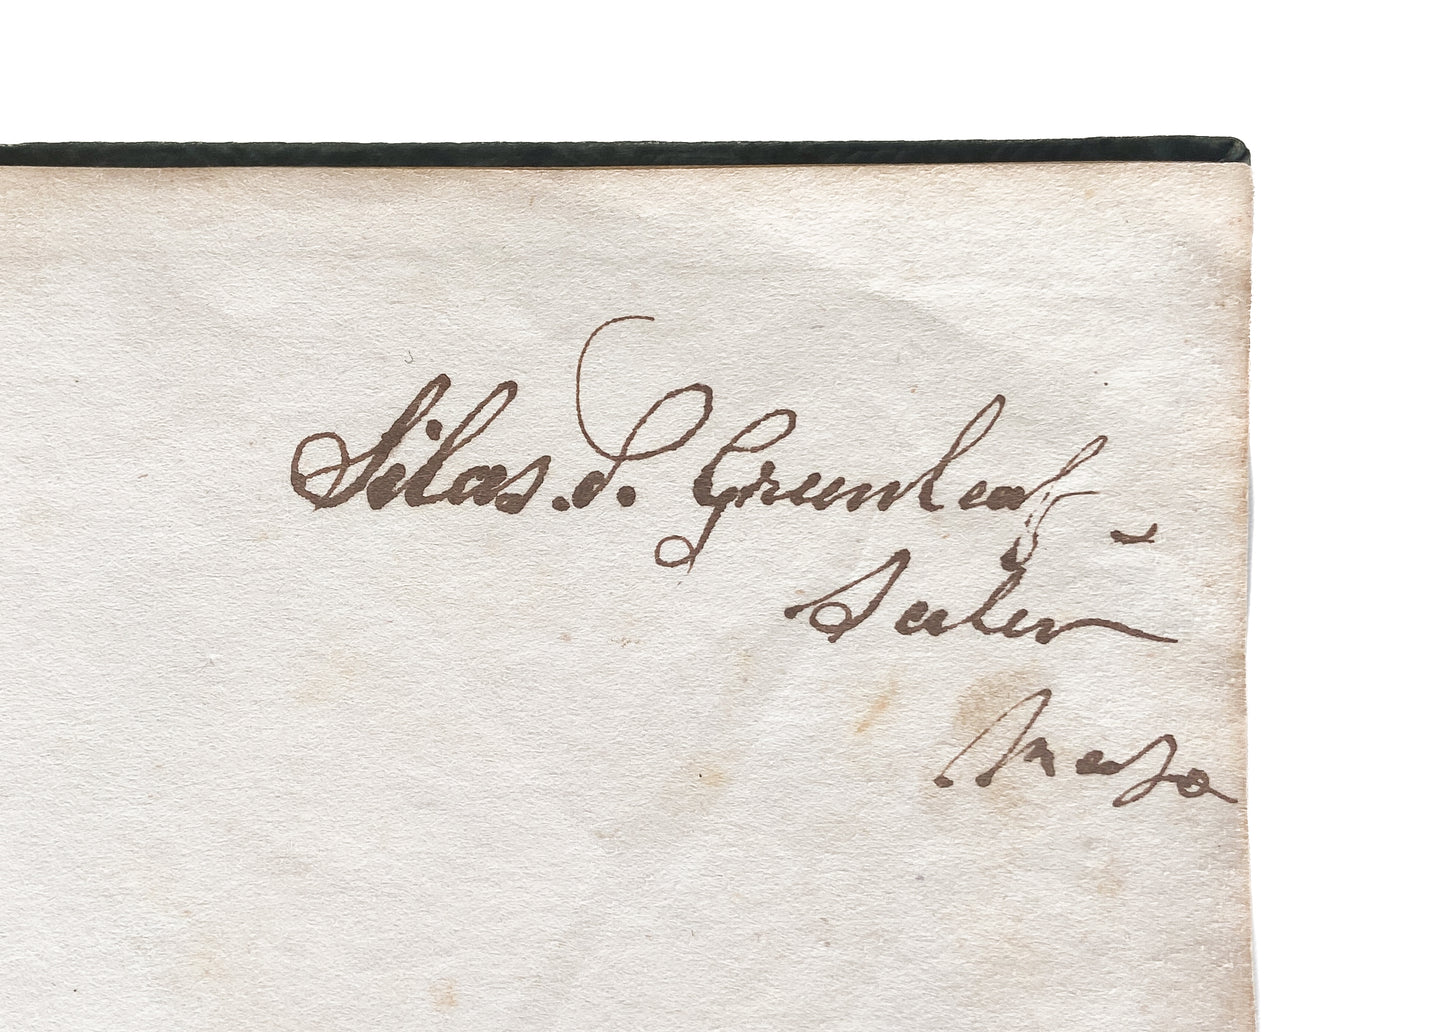 Silas. S. Greenleaf -
Salem
Mass